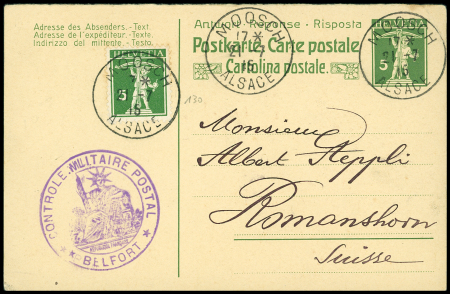 Adresse des Absenders. - Text
Adresse de l'expéditeur. - Texte.
Indirizzo del mittente. - Testo.
Antwort - Réponse - Risposta
Postkarte. Carte postale
Cartolina postale.
HELVETIA
5
HELVETIA
5
MOOSCH
ALSACE
MOOSCH
ALSACE
MOOSCH
ALSACE
130
Monsieur
Albert Steppli
Romanshorn
Suisse
CONTROLE MILITAIRE POSTAL
BELFORT